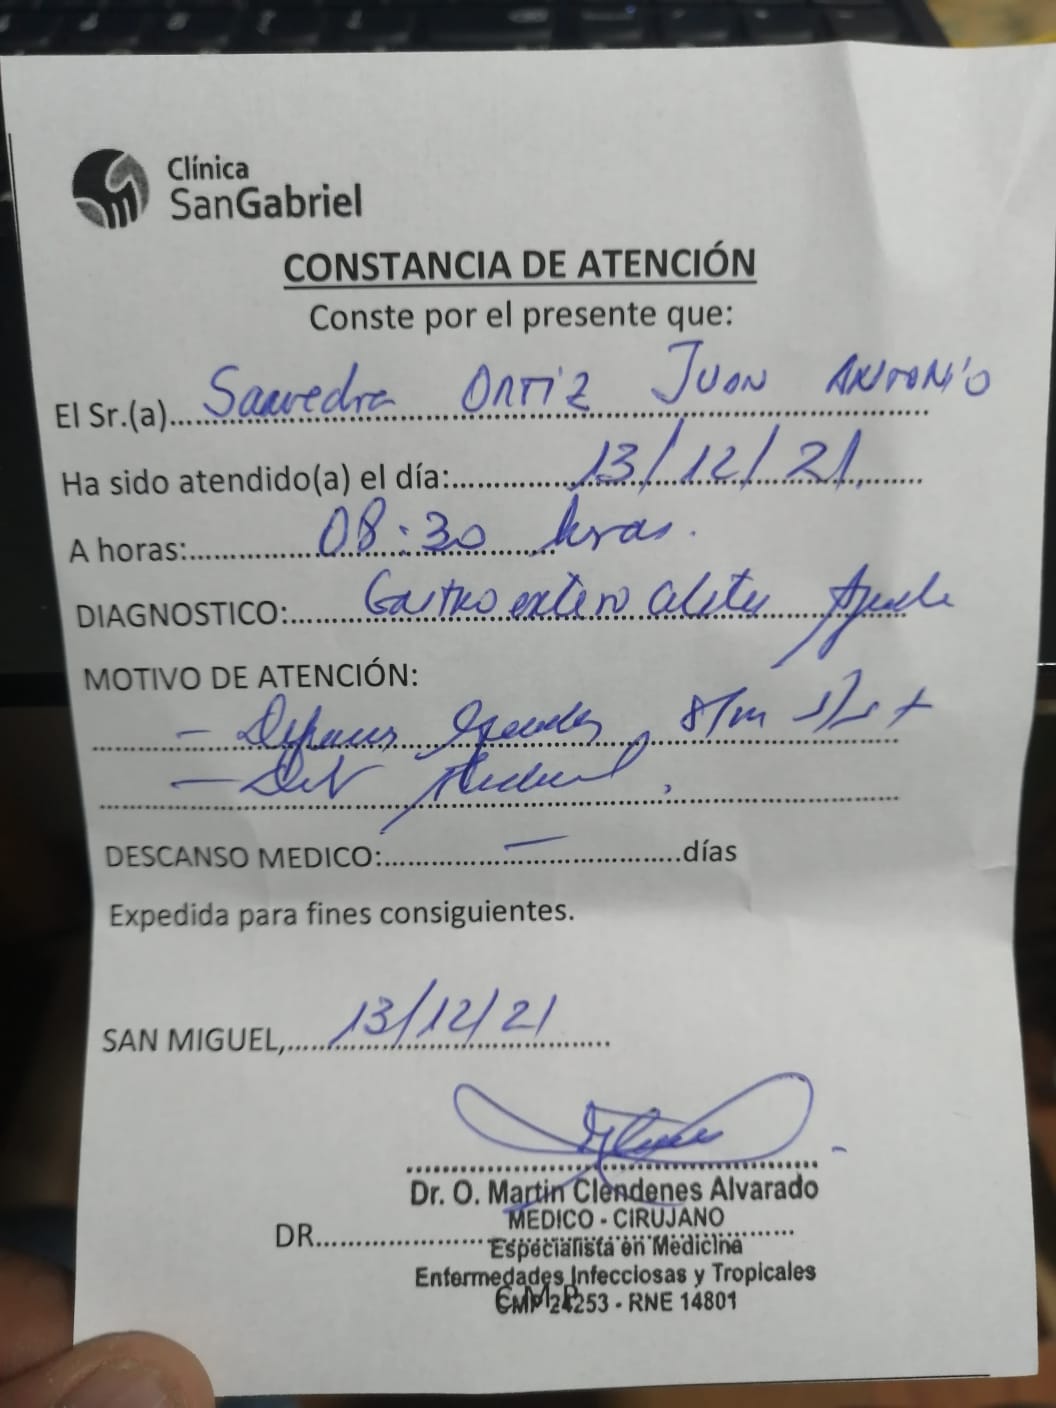 Clínica
SanGabriel
CONSTANCIA DE ATENCIÓN
Conste por el presente que:
El Sr.(a)... Saavedra ORTIZ JUAN ANTONIO
Ha sido atendido(a) el día:... 13/12/21
A horas:... 08:30 hras.
DIAGNOSTICO:... Gastroenterocolitis Aguda
MOTIVO DE ATENCIÓN:
DESCANSO MEDICO:... — ...días
Expedida para fines consiguientes.
SAN MIGUEL,... 13/12/21
Dr. O. Martin Clendenes Alvarado
MEDICO - CIRUJANO
DR...
Especialista en Medicina
Enfermedades Infecciosas y Tropicales
C.M.P.
CMP 24253 - RNE 14801